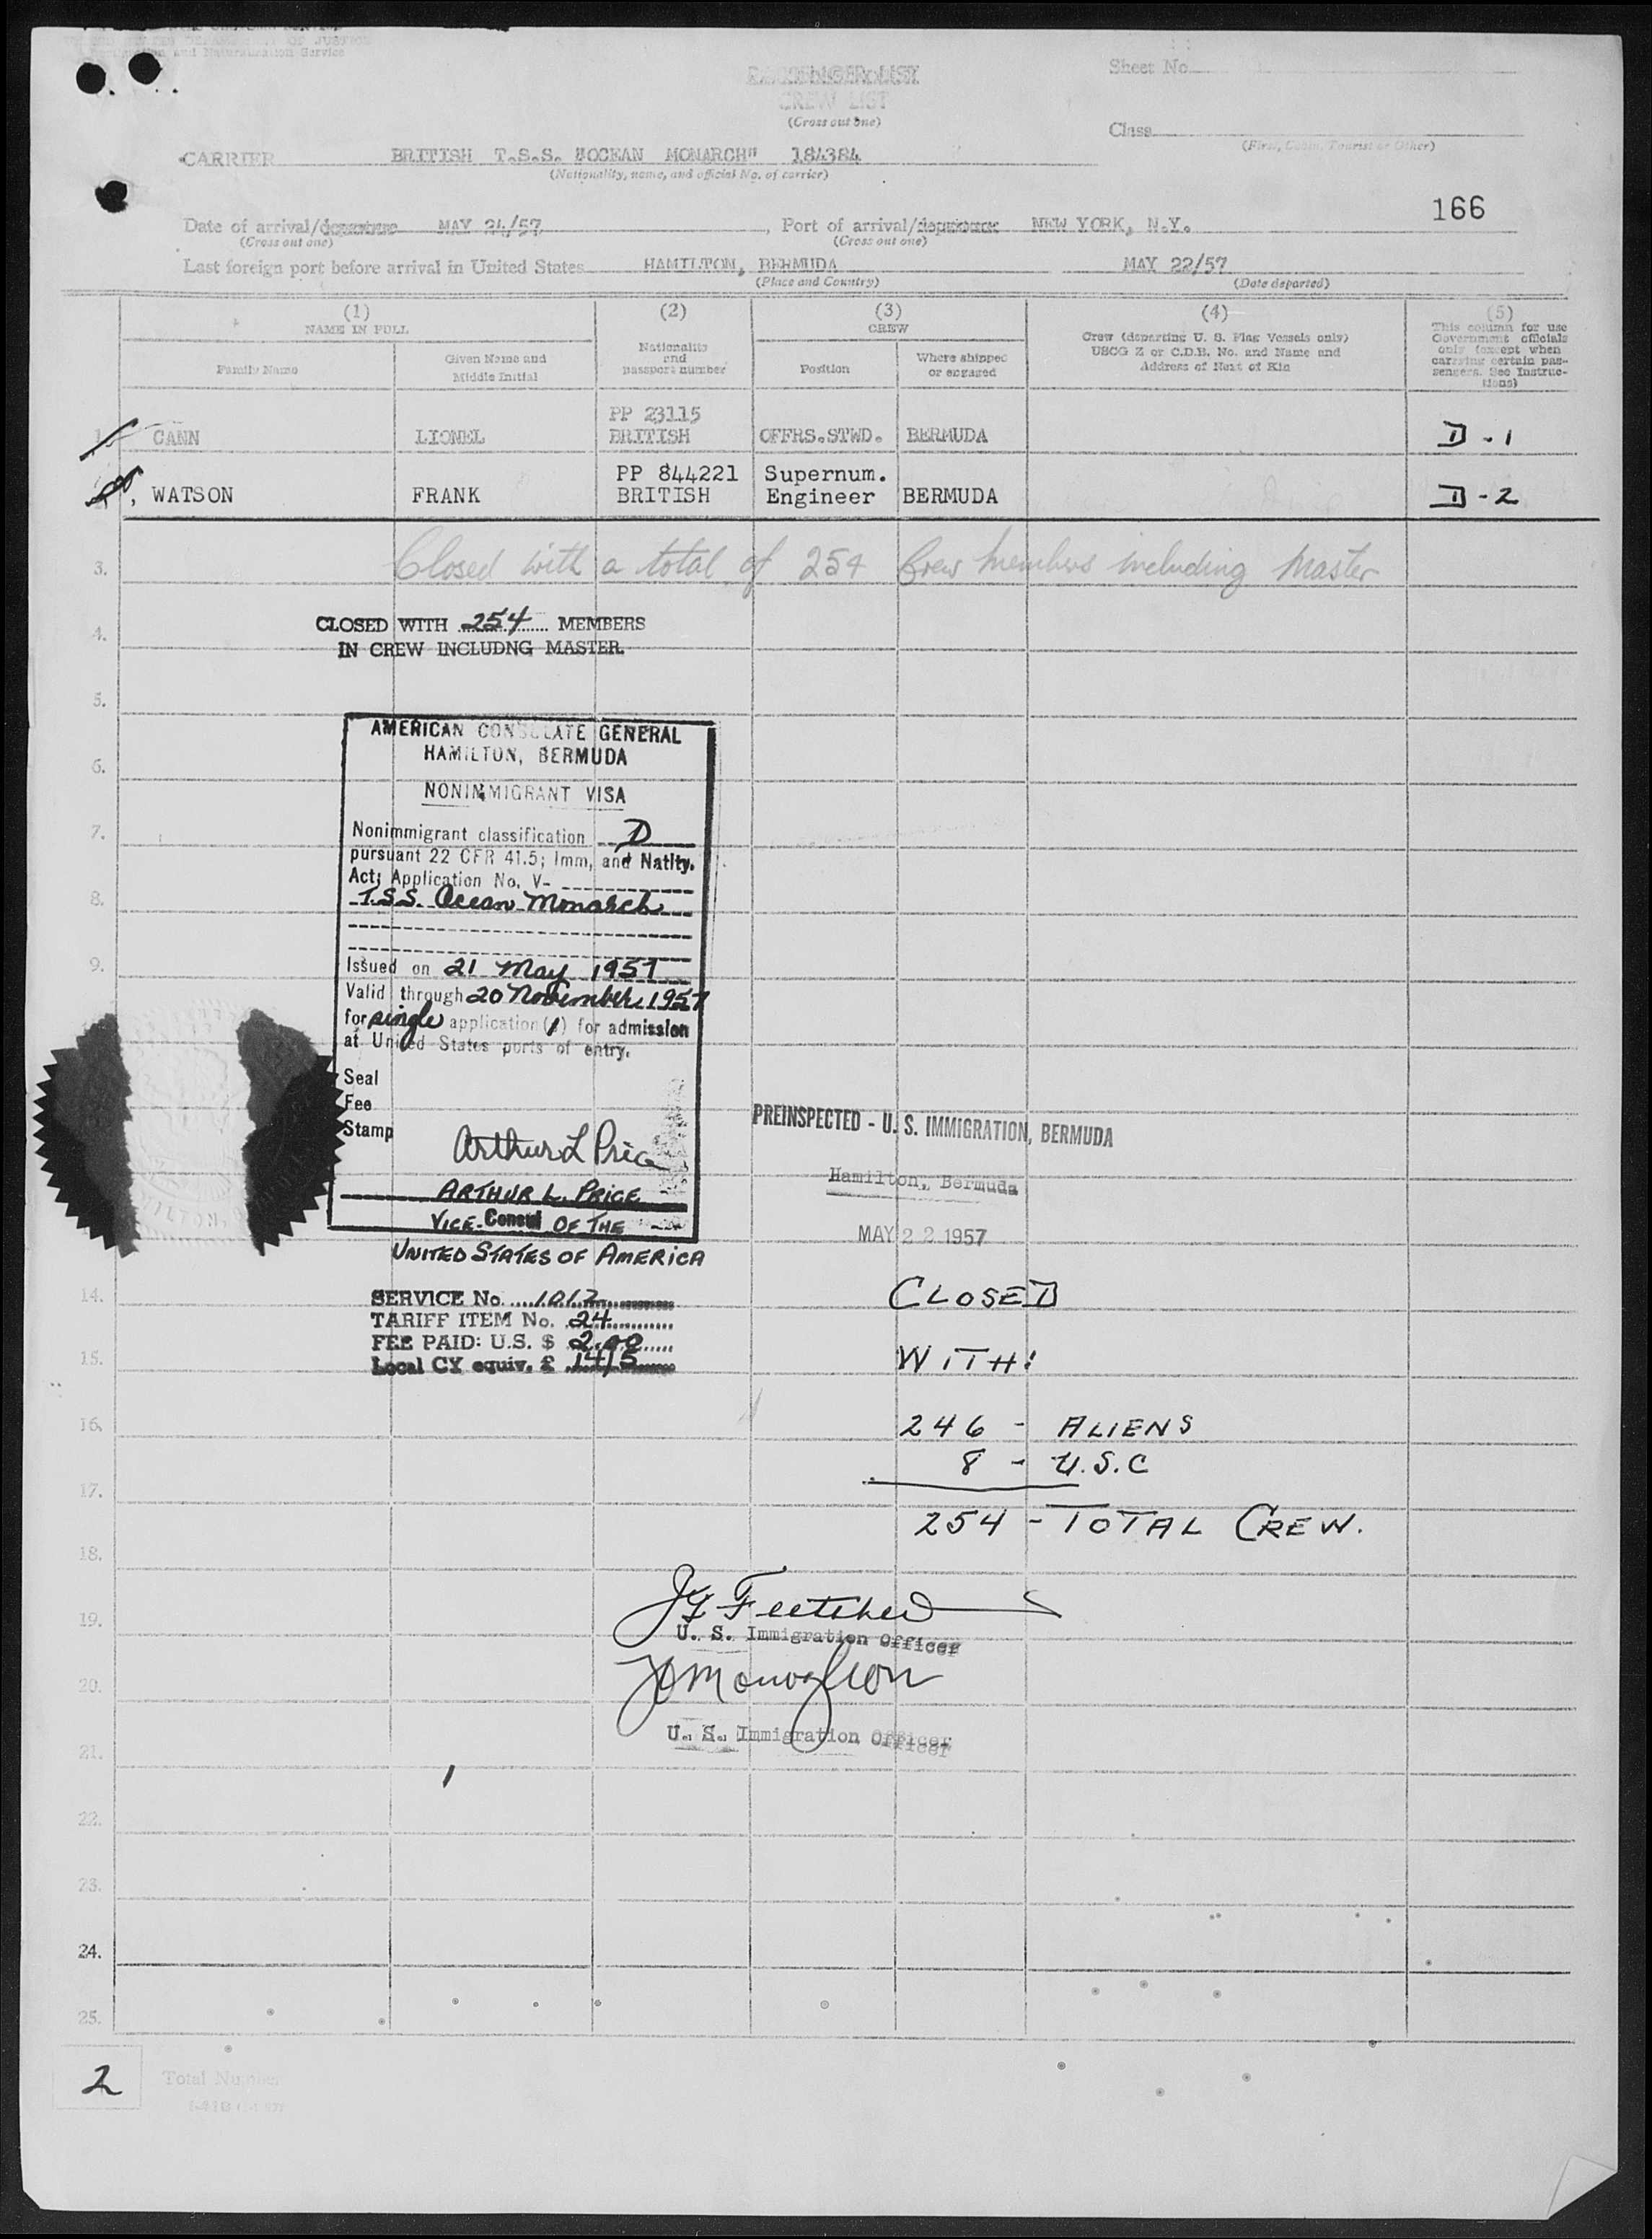 UNITED STATES DEPARTMENT OF JUSTICE
Immigration and Naturalization Service
PASSENGER LIST
CREW LIST
(Cross out one)
Sheet No.
Class
(First, Cabin, Tourist or Other)
CARRIER BRITISH T.S.S. "OCEAN MONARCH" 184384
(Nationality, name, and official No. of carrier)
166
Date of arrival/departure MAY 24/57, Port of arrival/departure NEW YORK, N.Y.
(Cross out one) (Cross out one)
Last foreign port before arrival in United States HAMILTON, BERMUDA MAY 22/57
(Place and Country) (Date departed)
(1) NAME IN FULL
Family Name
Given Name and Middle Initial
(2)
Nationality and passport number
(3) CREW
Position
Where shipped or engaged
(4)
Crew (departing U. S. Flag Vessels only)
USCG Z or C.D.B. No. and Name and
Address of Next of Kin
(5)
This column for use
Government officials
only (except when
carrying certain pas-
sengers. See Instruc-
tions)
PP 23115
CANN LIONEL BRITISH OFFRS.STWD. BERMUDA D - 1
PP 844221 Supernum.
, WATSON FRANK BRITISH Engineer BERMUDA D - 2
3. Closed with a total of 254 Crew members including Master
CLOSED WITH 254 MEMBERS
4.
IN CREW INCLUDNG MASTER.
5.
AMERICAN CONSULATE GENERAL
HAMILTON, BERMUDA
6.
NONIMMIGRANT VISA
7.
Nonimmigrant classification D
pursuant 22 CFR 41.5; Imm, and Natlty.
Act; Application No. V-
8.
T.S.S. Ocean Monarch
9.
Issued on 21 May 1957
Valid through 20 November 1957
for single application( ) for admission
at United States ports of entry.
Seal
Fee
Stamp
Arthur L Price
ARTHUR L. PRICE
VICE-Consul OF THE
UNITED STATES OF AMERICA
PREINSPECTED - U. S. IMMIGRATION, BERMUDA
Hamilton, Bermuda
MAY 22 1957
14.
SERVICE No. 1012
TARIFF ITEM No. 24
FEE PAID: U.S. $ 2.00
Local CY equiv. £ 14/5
CLOSED
15.
WITH:
16.
246 - ALIENS
8 - U.S.C
17.
254 - TOTAL CREW.
18.
19.
U. S. Immigration Officer
20.
U. S. Immigration Officer
21.
22.
23.
24.
25.
2
Total Number